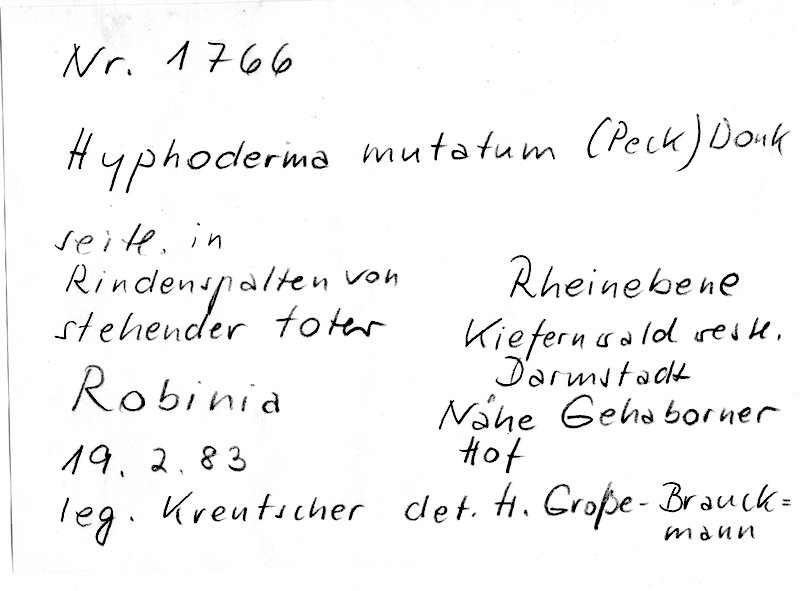 Nr. 1766
Hyphoderma mutatum (Peck) Donk
seitl. in
Rindenspalten von
stehender toter
Robinia
19. 2. 83
Rheinebene
Kiefernwald westl.
Darmstadt
Nähe Gehaborner
Hof
leg. Kreutscher det. H. Große-Brauck=
mann